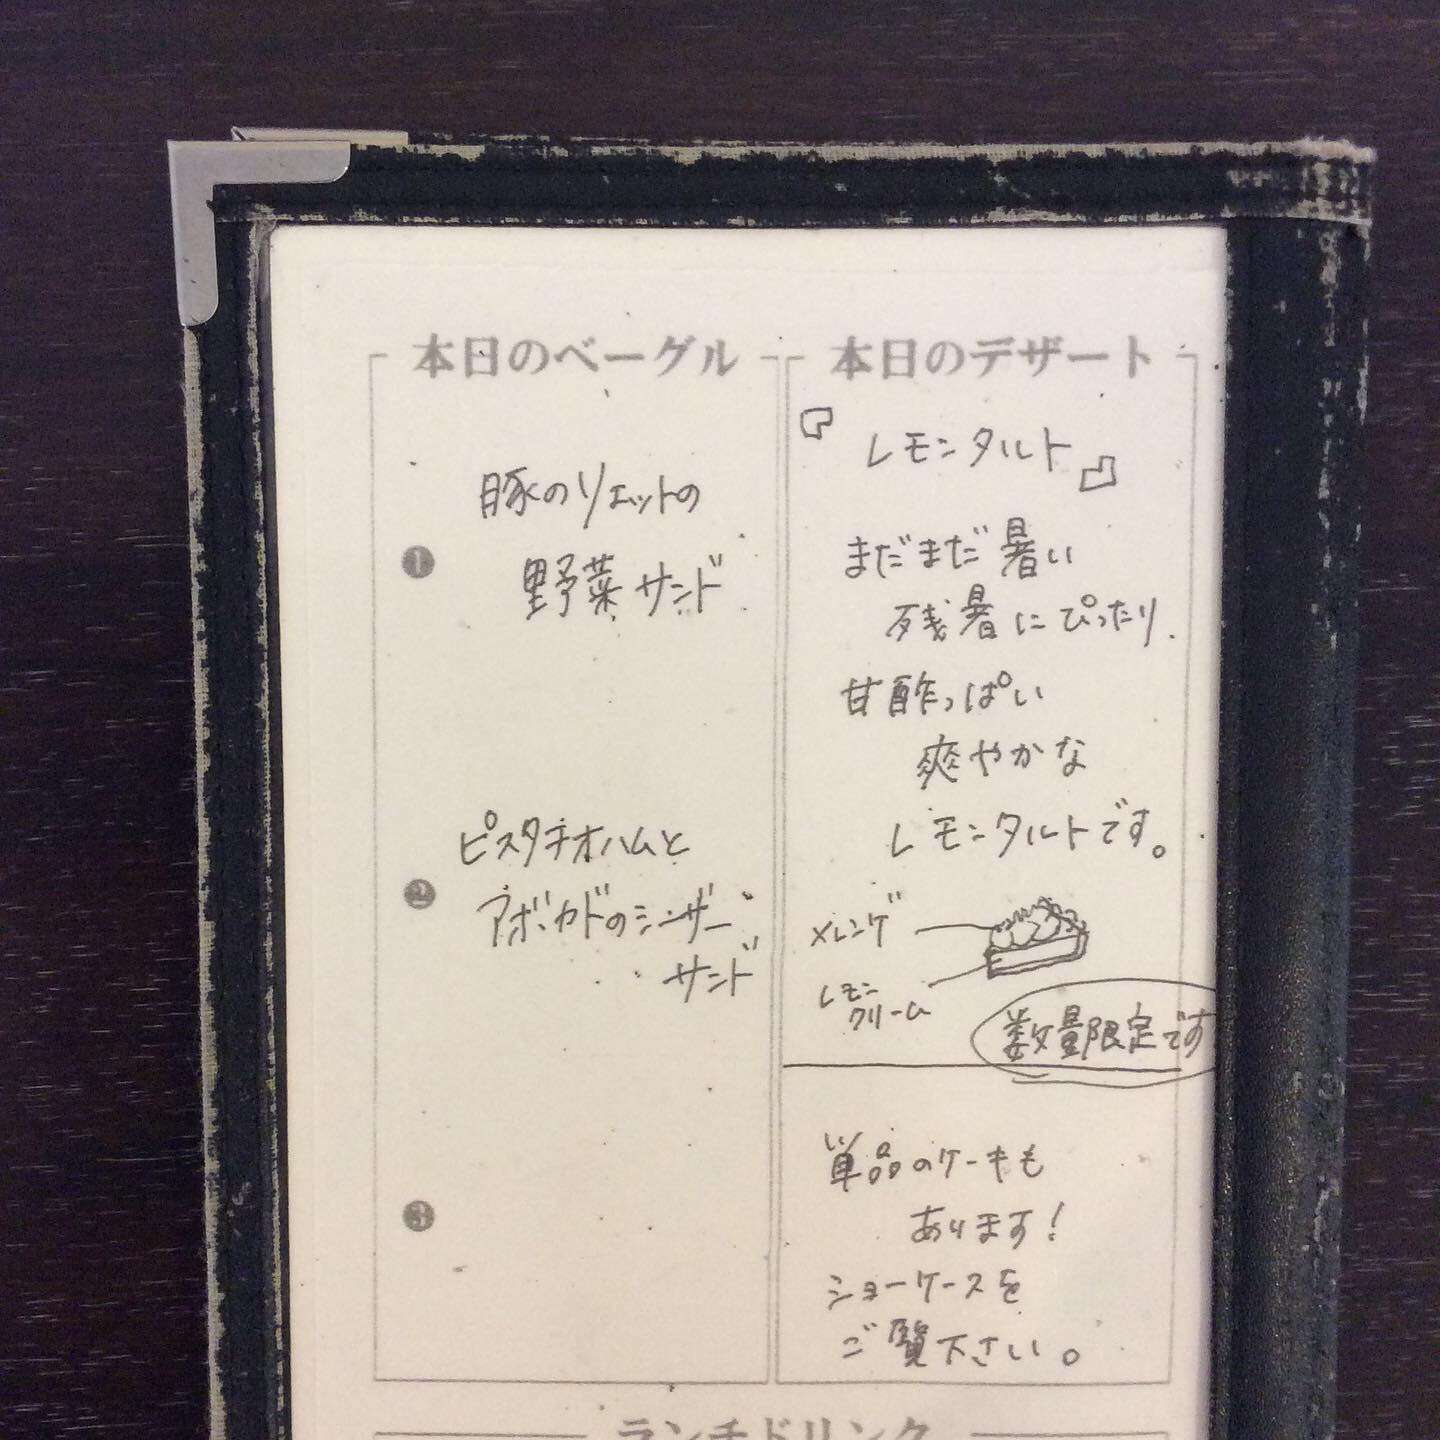 本日のベーグル
❶
豚のリエットの
野菜サンド
❷
ピスタチオハムと
アボカドのシーザー
サンド
❸
本日のデザート
『レモンタルト』
まだまだ暑い
残暑にぴったり
甘酢っぱい
爽やかな
レモンタルトです。
メレンゲ
レモン
クリーム
数量限定です
単品のケーキも
あります!
ショーケースを
ご覧下さい。
ランチドリンク